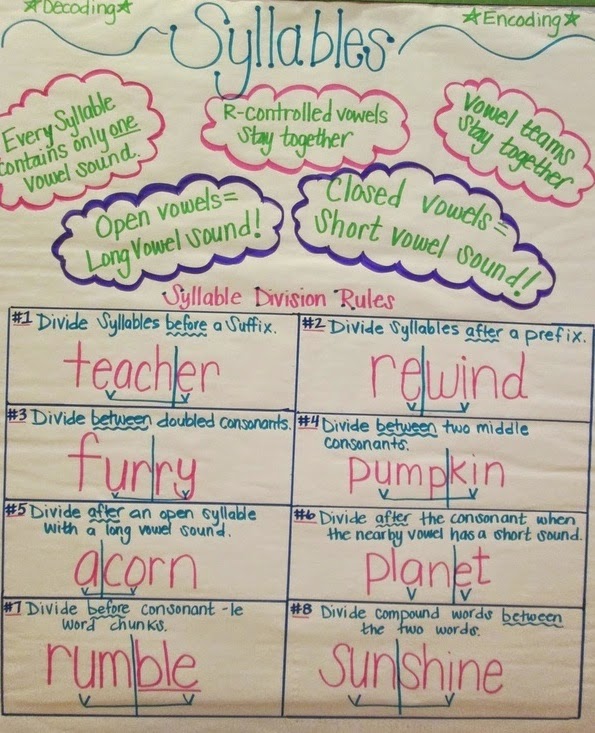 ☆Decoding☆
☆Encoding☆
Syllables
Every Syllable
contains only one
vowel sound.
R-controlled vowels
stay together
Vowel teams
stay together
Open vowels=
Long Vowel sound!
Closed vowels=
Short vowel sound!
Syllable Division Rules
#1 Divide Syllables before a Suffix.
teach|er
#2 Divide syllables after a prefix.
re|wind
#3 Divide between doubled consonants.
fur|ry
#4 Divide between two middle
consonants.
pump|kin
#5 Divide after an open syllable
with a long vowel sound.
a|corn
#6 Divide after the consonant when
the nearby vowel has a short sound.
plan|et
#7 Divide before consonant -le
word chunks.
rum|ble
#8 Divide compound words between
the two words.
sun|shine